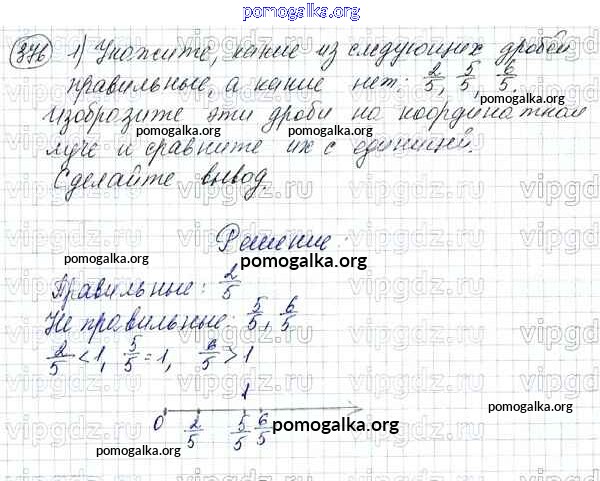 pomogalka.org
376 1) Укажите, какие из следующих дробей
правильные, а какие нет: 2/5, 5/5, 6/5.
pomogalka.org
Изобразите эти дроби на координатном
pomogalka.org pomogalka.org
луче и сравните их с единицей.
pomogalka.org
Сделайте вывод.
Решение:
pomogalka.org pomogalka.org
Правильные: 2/5
Не правильные: 5/5, 6/5
2/5 < 1, 5/5 = 1, 6/5 > 1
1
pomogalka.org
0 2/5 5/5 6/5 pomogalka.org
pomogalka.org
vipgdz.ru